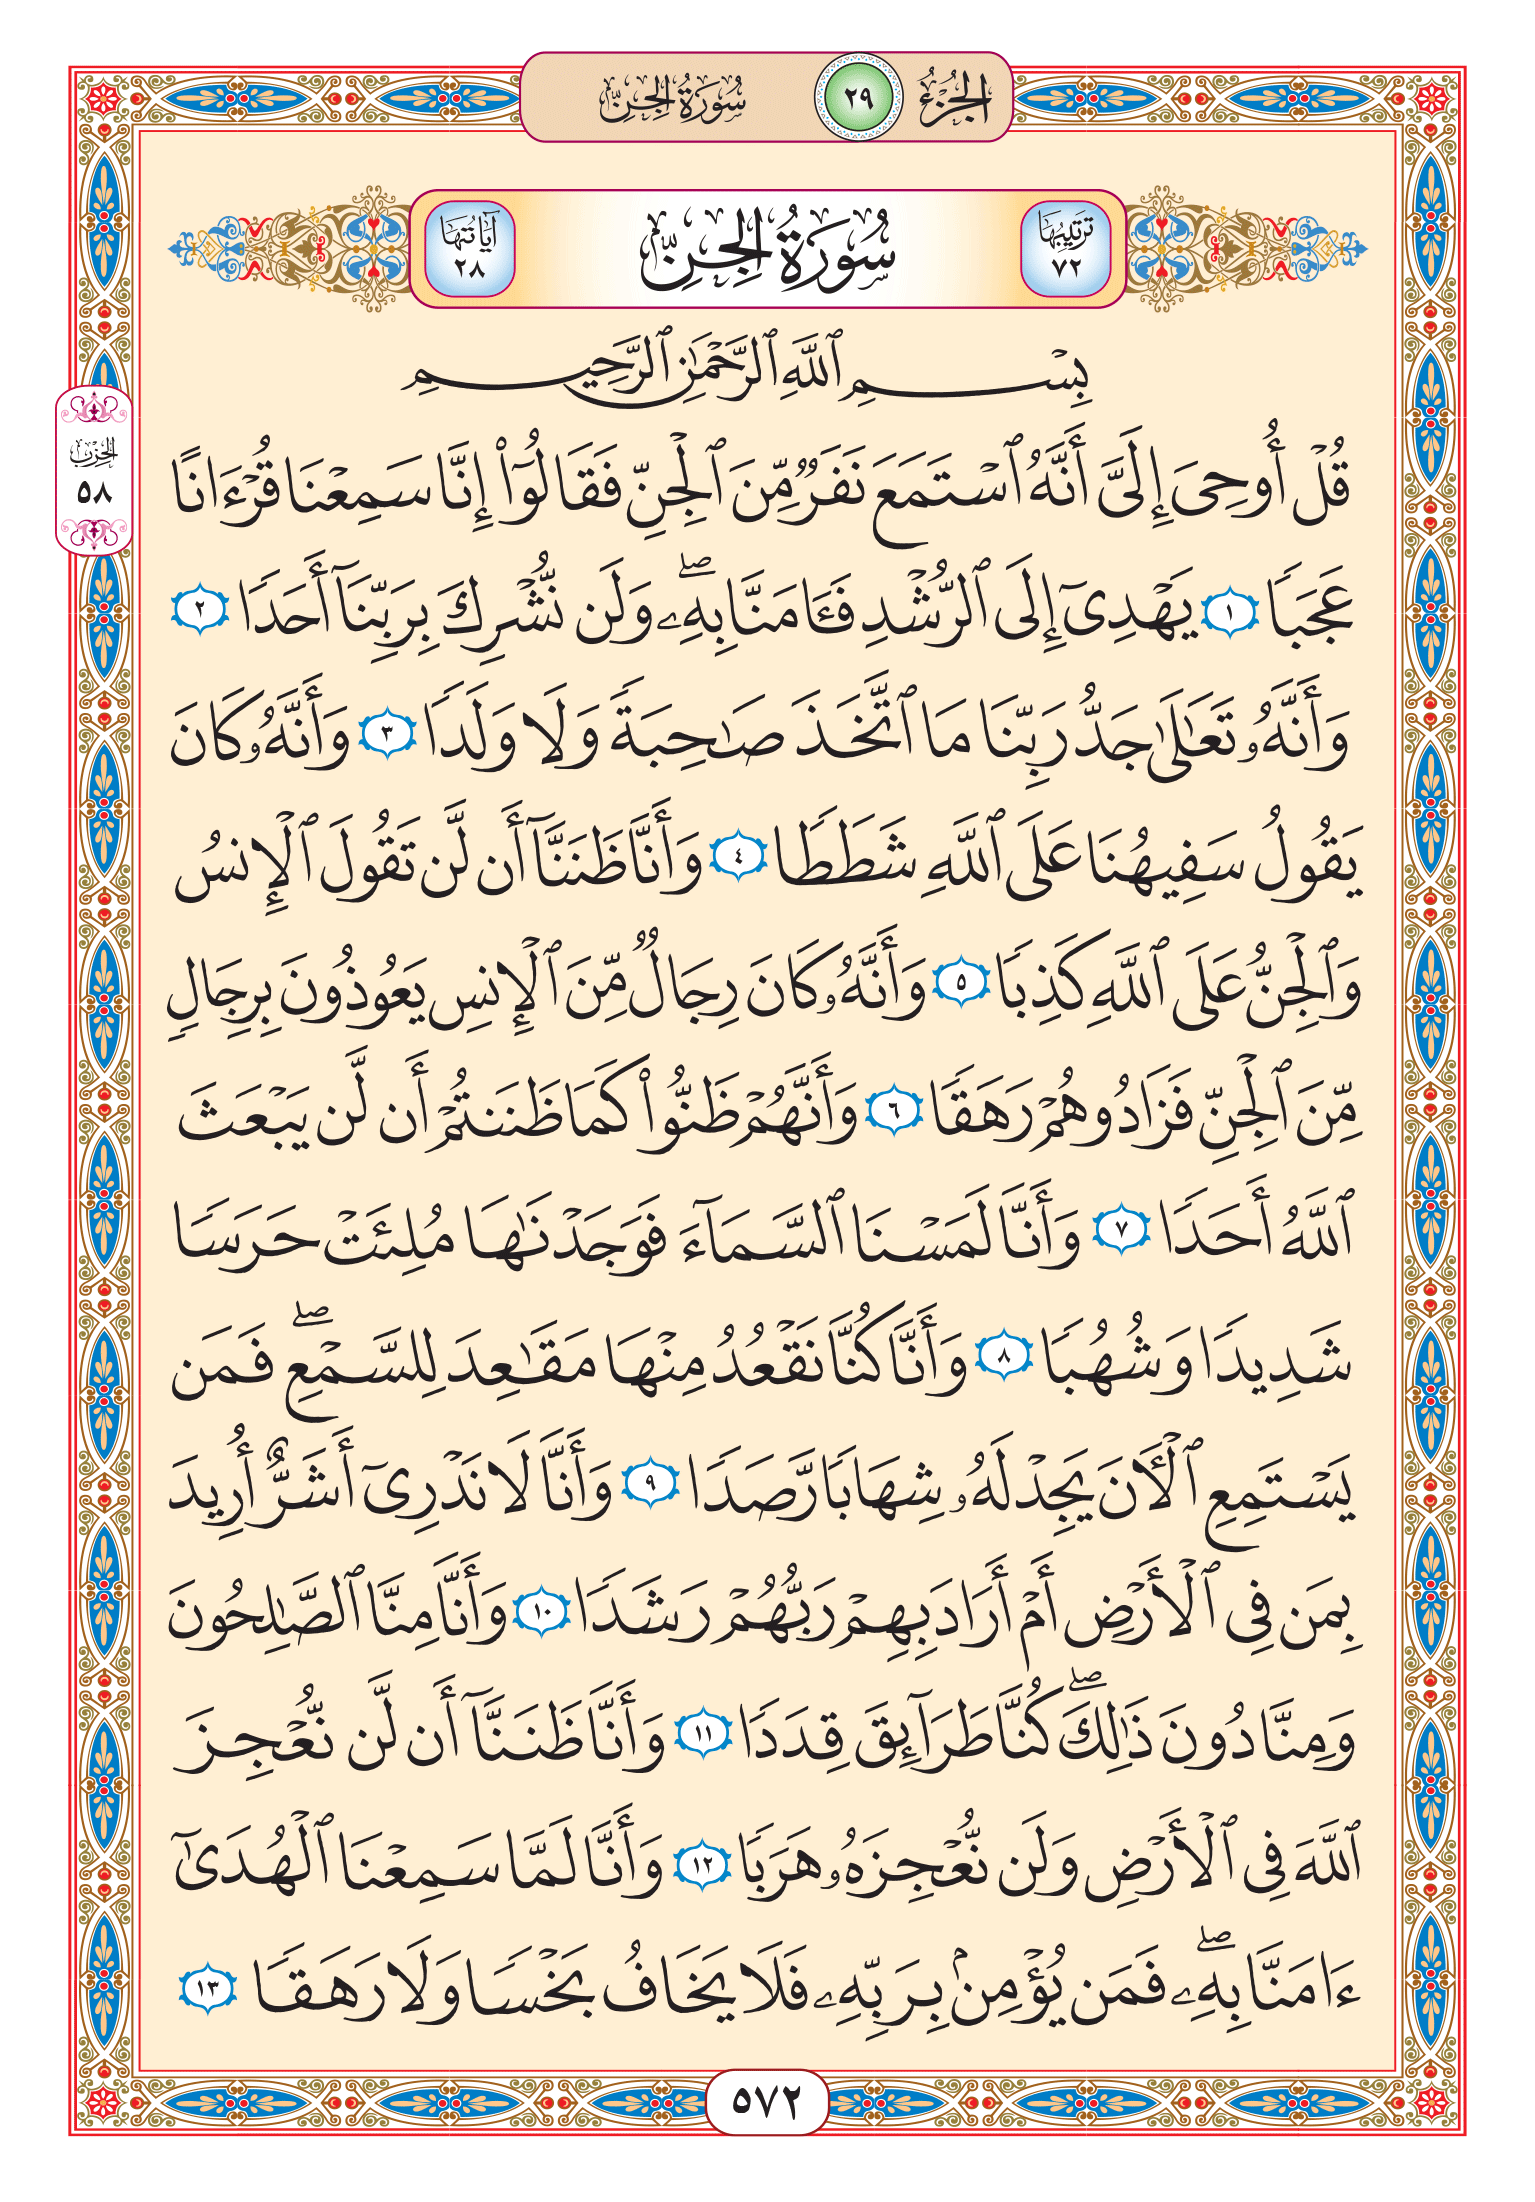 الجُزْءُ ٢٩ سُورَةُ الجِنِّ
تَرْتِيبُهَا ٧٢ سُورَةُ الجِنِّ آيَاتُهَا ٢٨
بِسْمِ ٱللَّهِ ٱلرَّحْمَٰنِ ٱلرَّحِيمِ
قُلْ أُوحِىَ إِلَىَّ أَنَّهُ ٱسْتَمَعَ نَفَرٌ مِّنَ ٱلْجِنِّ فَقَالُوٓا۟ إِنَّا سَمِعْنَا قُرْءَانًا
عَجَبًا ١ يَهْدِىٓ إِلَى ٱلرُّشْدِ فَـَٔامَنَّا بِهِۦ ۖ وَلَن نُّشْرِكَ بِرَبِّنَآ أَحَدًا ٢
وَأَنَّهُۥ تَعَٰلَىٰ جَدُّ رَبِّنَا مَا ٱتَّخَذَ صَٰحِبَةً وَلَا وَلَدًا ٣ وَأَنَّهُۥ كَانَ
يَقُولُ سَفِيهُنَا عَلَى ٱللَّهِ شَطَطًا ٤ وَأَنَّا ظَنَنَّآ أَن لَّن تَقُولَ ٱلْإِنسُ
وَٱلْجِنُّ عَلَى ٱللَّهِ كَذِبًا ٥ وَأَنَّهُۥ كَانَ رِجَالٌ مِّنَ ٱلْإِنسِ يَعُوذُونَ بِرِجَالٍ
مِّنَ ٱلْجِنِّ فَزَادُوهُمْ رَهَقًا ٦ وَأَنَّهُمْ ظَنُّوا۟ كَمَا ظَنَنتُمْ أَن لَّن يَبْعَثَ
ٱللَّهُ أَحَدًا ٧ وَأَنَّا لَمَسْنَا ٱلسَّمَآءَ فَوَجَدْنَٰهَا مُلِئَتْ حَرَسًا
شَدِيدًا وَشُهُبًا ٨ وَأَنَّا كُنَّا نَقْعُدُ مِنْهَا مَقَٰعِدَ لِلسَّمْعِ ۖ فَمَن
يَسْتَمِعِ ٱلْـَٔانَ يَجِدْ لَهُۥ شِهَابًا رَّصَدًا ٩ وَأَنَّا لَا نَدْرِىٓ أَشَرٌّ أُرِيدَ
بِمَن فِى ٱلْأَرْضِ أَمْ أَرَادَ بِهِمْ رَبُّهُمْ رَشَدًا ١٠ وَأَنَّا مِنَّا ٱلصَّٰلِحُونَ
وَمِنَّا دُونَ ذَٰلِكَ ۖ كُنَّا طَرَآئِقَ قِدَدًا ١١ وَأَنَّا ظَنَنَّآ أَن لَّن نُّعْجِزَ
ٱللَّهَ فِى ٱلْأَرْضِ وَلَن نُّعْجِزَهُۥ هَرَبًا ١٢ وَأَنَّا لَمَّا سَمِعْنَا ٱلْهُدَىٰٓ
ءَامَنَّا بِهِۦ ۖ فَمَن يُؤْمِنۢ بِرَبِّهِۦ فَلَا يَخَافُ بَخْسًا وَلَا رَهَقًا ١٣
الحِزْب
٥٨
٥٧٢